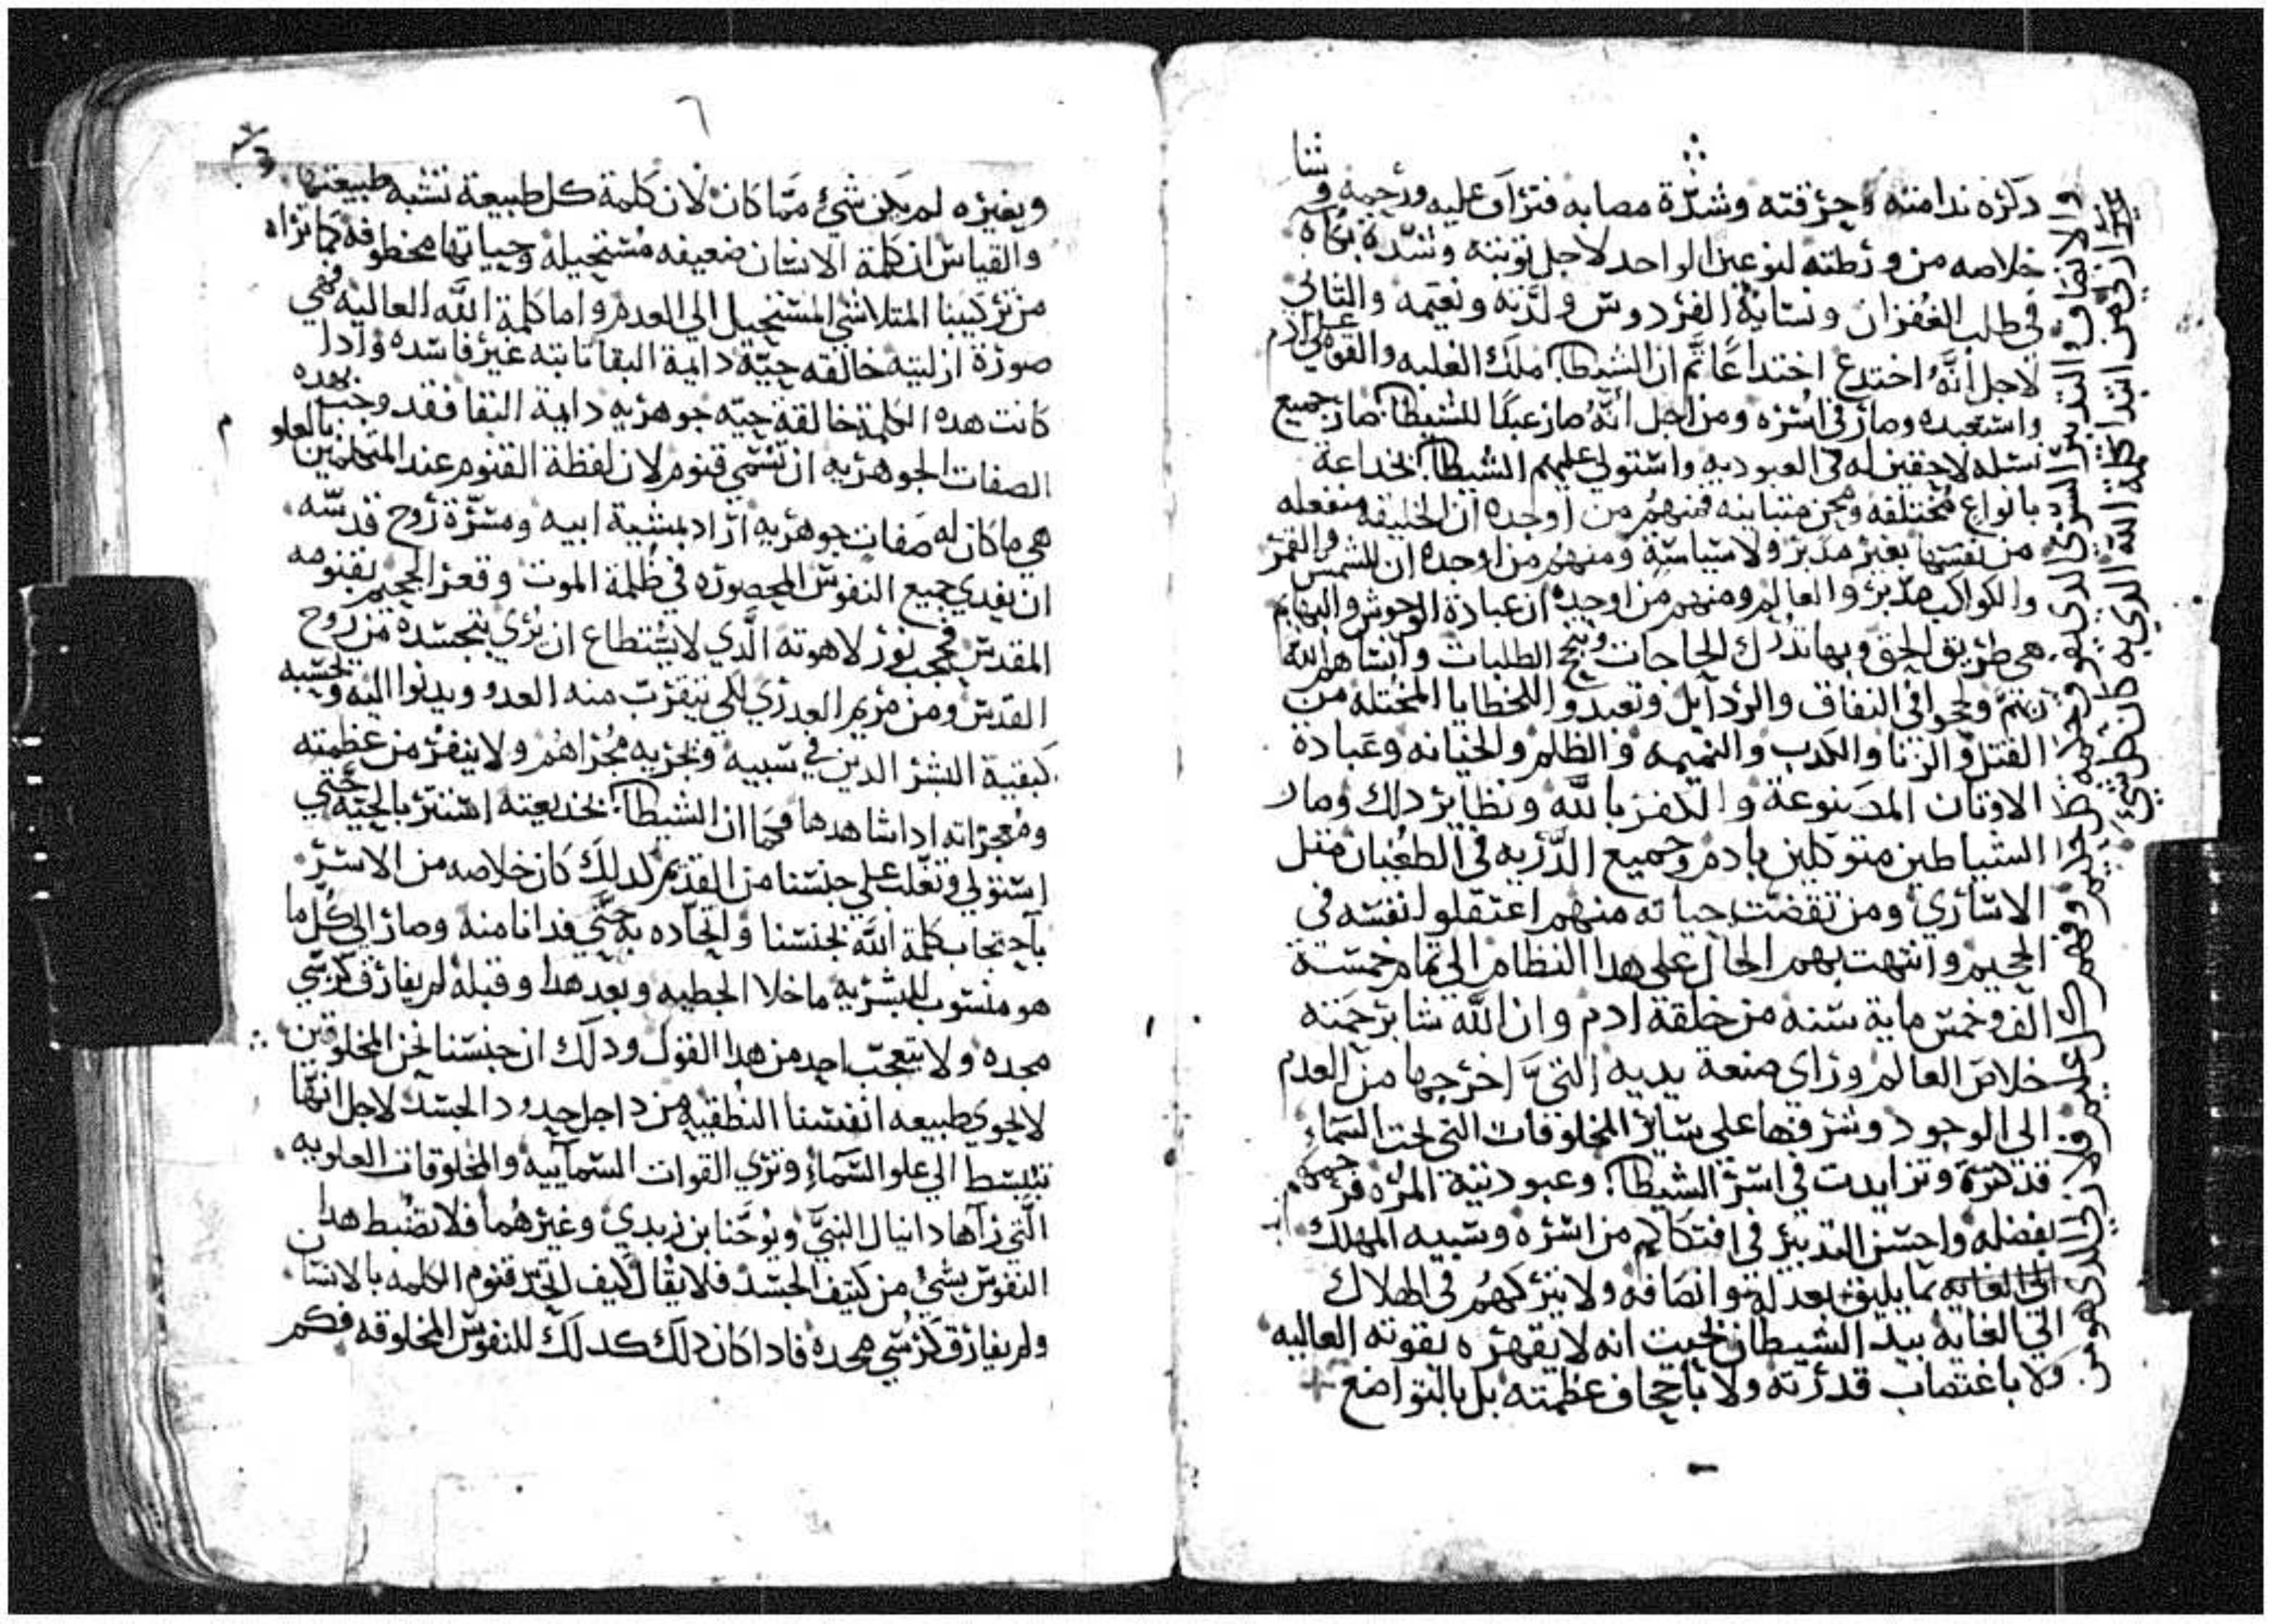 دكره ندامته وحرقته وشدة مصابه فتراف عليه ورحمه وشا
خلاصه من ورطته لنوعين الواحد لاجل توبته وشدة بكاه
في طلب الغفران ونسيانه الفردوس ولذته ونعيمه والتاني
لاجل انه اختدع اختداعا تم ان الشيطان ملك الغلبه والقوه علي ادم
واستعبده وصار في اسره ومن اجل انه صار عبدا للشيطان صار جميع
نسله لاحقين له في العبوديه واستولي عليهم الشيطان بخداعة
بانواع مختلفه ومحن متباينه فمنهم من اوجده ان الخليقه منفعله
من نفسها بغير مدبر ولا سياسة ومنهم من اوجده ان للشمس والقمر
والكواكب مدبره العالم ومنهم من اوجده ان عبادة الوحوش والبهايم
هي طريق الحق وبها تدرك الحاجات وتنجح الطلبات وانساهم الله
ربهم ولججوا في النفاق والردايل وتعبدوا للخطايا المختلفه من
القتل والزنا والكدب والنميمه والظلم والخيانه وعبادة
الاوتان المصنوعة والكفر بالله ونظاير دلك وصار
الشياطين متوكلين بادم وجميع الدريه في الطغيان متل
الاساري ومن تقضت حياته منهم اعتقلوا نفسه في
الجحيم وانتهت بهم الحال علي هدا النظام الي تمام خمسة
الف وخمس ماية سنه من خلقة ادم وان الله شا برحمته
خلاص العالم وراي صنعة يديه التي اخرجها من العدم
الى الوجود وشرفها على ساير المخلوقات التي تحت السماء
قد كترة وتزايدت في اسر الشيطان وعبودية المره فرحمهم
بفضله واحسن التدبير في افتكاكهم من اسره وسبيه المهلك
الي الغايه بما يليق بعدله وانصافه ولا يتركهم في الهلاك
الي الغايه بيد الشيطان بحيت انه لا يقهره بقوته العاليه
ولا باغتصاب قدرته ولا باجحاف عظمته بل بالتواضع
والاتفاق والتدبير السري الدي يفوق وصفه كل حليم وفهم كل عليم ولان الدي هو من
غير ازلي من ابتدا كلمة الله الدي به كان كل شي
٦
وبغيره لم يكن شي مما كان لان كلمة كل طبيعة تشبه طبيعتها
والقياس ان كلمة الانسان ضعيفه مستحيله وحياتها مخطوفه كما نراه
من تركيبنا المتلاشي المستحيل الي العدم واما كلمة الله العاليه فهي
صورة ازليه خالقه حيه دايمة البقا تابته غير فاسده وادا
كانت هده الكلمة خالقة حيه جوهريه دايمة البقا فقد وجب بهده
الصفات الجوهريه ان تسمي قنوم لان لفظة القنوم عند المتكلمين بالعلو
هي ما كان له صفات جوهريه اراد بمشية ابيه ومسرة روح قدسه
ان يفدي جميع النفوس المحصوره في ظلمة الموت وقعر الجحيم بقنومه
المقدس فحجب نور لاهوته الذي لا يستطاع ان يري بتجسده من روح
القدس ومن مريم العدري لكي يتقرب منه العدو ويدنوا اليه وتحسبه
كبقية البشر الدين في سبيه وتجريه مجراهم ولا ينفر من عظمته
ومعجزاته ادا شاهدها فكما ان الشيطان بخديعته استتر بالحية حتي
استولي وتغلب علي جنسنا من القديم كدلك كان خلاصه من الاسر
باحتجاب كلمة الله بجنسنا واتحاده به حتي فدانا منه وصار الي كل ما
هو منسوب للبشريه ما خلا الخطيه وبعد هدا وقبله لم يفارق كرسي
مجده ولا يتعجب احد من هدا القول ودلك ان جنسنا نحن المخلوقين
لا يحوي طبيعه انفسنا النطقيه من داخل حدود الجسد لاجل انها
تنبسط الي علو السماء وتري القوات السماييه والمخلوقات العلويه
التي راها دانيال النبي ويوحنا بن زبدي وغيرهما فلا تضبط هدا
النفوس بشي من كتيف الجسد فلا يقال كيف اتحد قنوم الكلمه بالانسان
ولم يفارق كرسي مجده فادا كان دلك كدلك للنفوس المخلوقه فكم